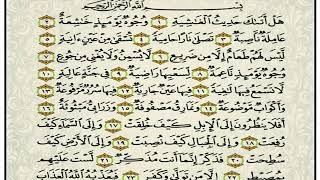 بِسْمِ اللَّهِ الرَّحْمَٰنِ الرَّحِيمِ
هَلْ أَتَىٰكَ حَدِيثُ الْغَاشِيَةِ ١ وُجُوهٌ يَوْمَئِذٍ خَاشِعَةٌ ٢
عَامِلَةٌ نَاصِبَةٌ ٣ تَصْلَىٰ نَارًا حَامِيَةً ٤ تُسْقَىٰ مِنْ عَيْنٍ ءَانِيَةٍ ٥
لَيْسَ لَهُمْ طَعَامٌ إِلَّا مِنْ ضَرِيعٍ ٦ لَا يُسْمِنُ وَلَا يُغْنِي مِنْ جُوعٍ ٧
وُجُوهٌ يَوْمَئِذٍ نَاعِمَةٌ ٨ لِسَعْيِهَا رَاضِيَةٌ ٩ فِي جَنَّةٍ عَالِيَةٍ ١٠
لَا تَسْمَعُ فِيهَا لَاغِيَةً ١١ فِيهَا عَيْنٌ جَارِيَةٌ ١٢ فِيهَا سُرُرٌ مَرْفُوعَةٌ ١٣
وَأَكْوَابٌ مَوْضُوعَةٌ ١٤ وَنَمَارِقُ مَصْفُوفَةٌ ١٥ وَزَرَابِيُّ مَبْثُوثَةٌ ١٦
أَفَلَا يَنْظُرُونَ إِلَى الْإِبِلِ كَيْفَ خُلِقَتْ ١٧ وَإِلَى السَّمَاءِ كَيْفَ
رُفِعَتْ ١٨ وَإِلَى الْجِبَالِ كَيْفَ نُصِبَتْ ١٩ وَإِلَى الْأَرْضِ كَيْفَ
سُطِحَتْ ٢٠ فَذَكِّرْ إِنَّمَا أَنْتَ مُذَكِّرٌ ٢١ لَسْتَ عَلَيْهِمْ
بِمُصَيْطِرٍ ٢٢ إِلَّا مَنْ تَوَلَّىٰ وَكَفَرَ ٢٣ فَيُعَذِّبُهُ اللَّهُ الْعَذَابَ